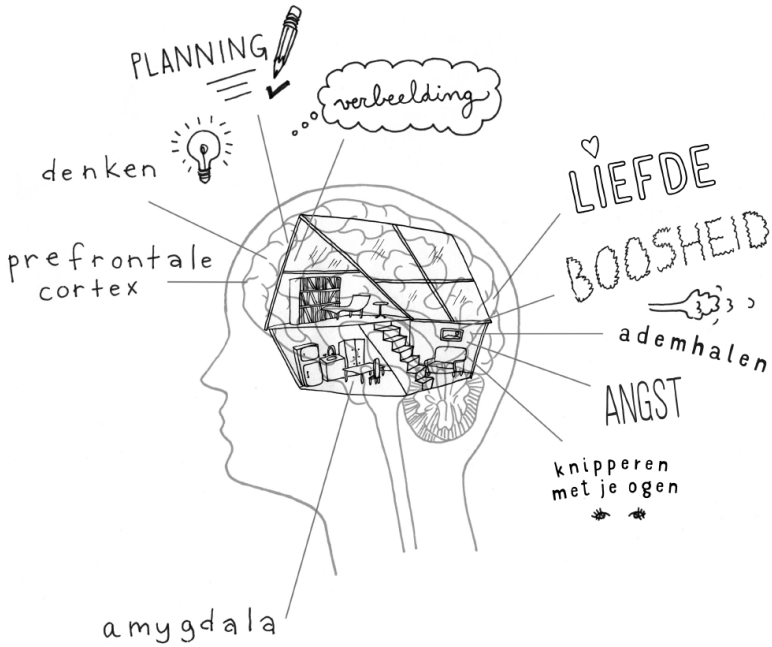 PLANNING
verbeelding
denken
prefrontale
cortex
LIEFDE
BOOSHEID
ademhalen
ANGST
knipperen
met je ogen
amygdala